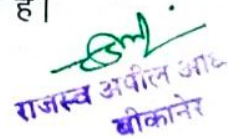 है।
राजस्व अपील
बीकानेर